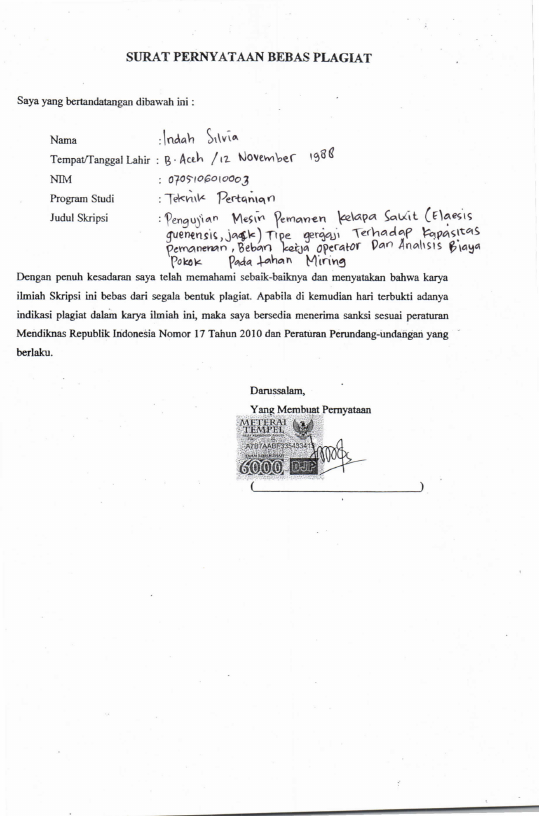 SURAT PERNYATAAN BEBAS PLAGIAT
Saya yang bertandatangan dibawah ini :
Nama : Indah Silvia
Tempat/Tanggal Lahir : B. Aceh / 12 November 1988
NIM : 0705106010003
Program Studi : Teknik Pertanian
Judul Skripsi : Pengujian Mesin Pemanen kelapa Sawit (Elaesis
guenensis, jack) Tipe gergaji Terhadap Kapasitas
Pemanenan, Beban kerja operator Dan Analisis Biaya
Pokok Pada Lahan Miring
Dengan penuh kesadaran saya telah memahami sebaik-baiknya dan menyatakan bahwa karya
ilmiah Skripsi ini bebas dari segala bentuk plagiat. Apabila di kemudian hari terbukti adanya
indikasi plagiat dalam karya ilmiah ini, maka saya bersedia menerima sanksi sesuai peraturan
Mendiknas Republik Indonesia Nomor 17 Tahun 2010 dan Peraturan Perundang-undangan yang
berlaku.
Darussalam,
Yang Membuat Pernyataan
METERAI
TEMPEL
6000 DJP
( )